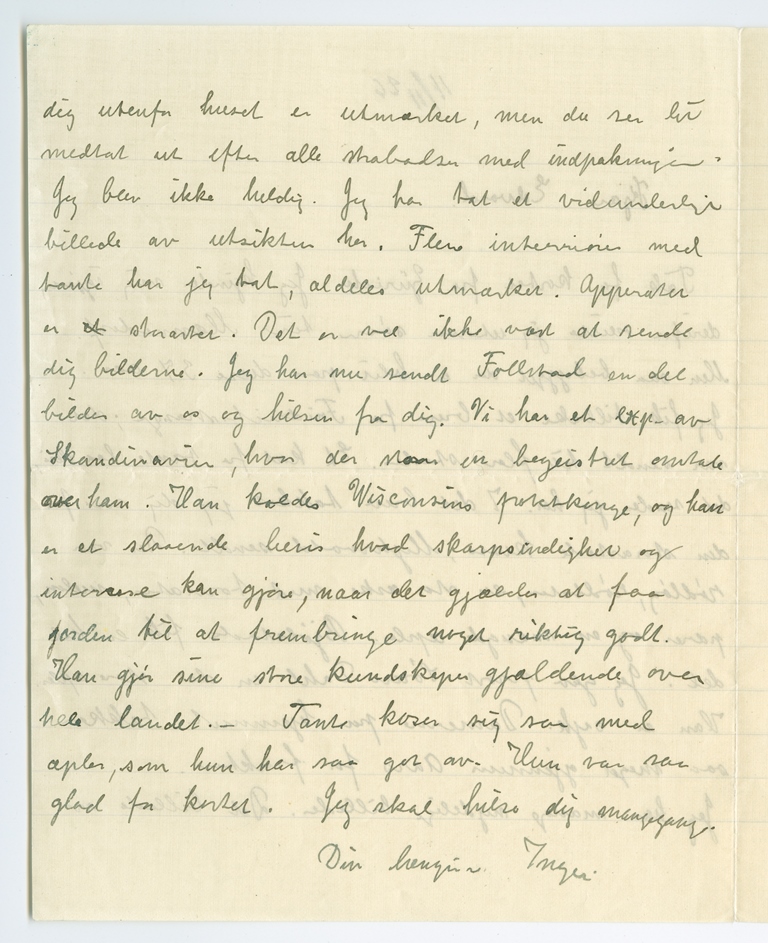 dig utenfor huset er utmærket, men du ser litt
medtat ut efter alle strabadser med indpakningen.
Jeg blev ikke heldig. Jeg har tat et vidunderlig
billede av utsikten her. Flere interiører med
tante har jeg tat, aldeles utmærket. Apparatet
er storartet. Det er vel ikke værd at sende
dig bilderne. Jeg har nu sendt Follstad en del
bilder av os og hilsen fra dig. Vi har et exp. av
Skandinavien, hvor der staar en begeistret omtale
over ham. Han kaldes Wisconsins potetkonge, og han
er et slaaende bevis hvad skarpsindighet og
interesse kan gjøre, naar det gjælder at faa
jorden til at frembringe noget riktig godt.
Han gjør sine store kundskaper gjældende over
hele landet. – Tante koser sig saa med
æpler, som hun har saa got av. Hun var saa
glad for kortet. Jeg skal hilse dig mangegange.
Din hengivne Inger.